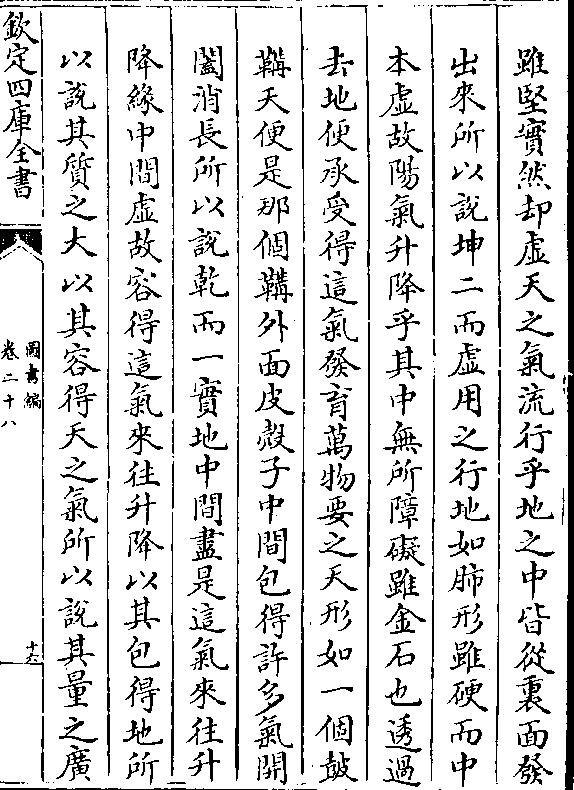 雖堅實然却虚天之氣流行乎地之中皆從裏面發
出來所以說坤二而虚用之行地如肺形雖硬而中
本虚故陽氣升降乎其中無所障礙雖金石也透過
去地便承受得這氣發育萬物要之天形如一個鼓
鞴天便是那個鞴外面皮殼子中間包得許多氣開
闔消長所以說乾而一實地中間盡是這氣來往升
降緣中間虚故容得這氣來往升降以其包得地所
以說其質之大以其容得天之氣所以說其量之廣
欽定四庫全書
圖書編
卷二十八
十六